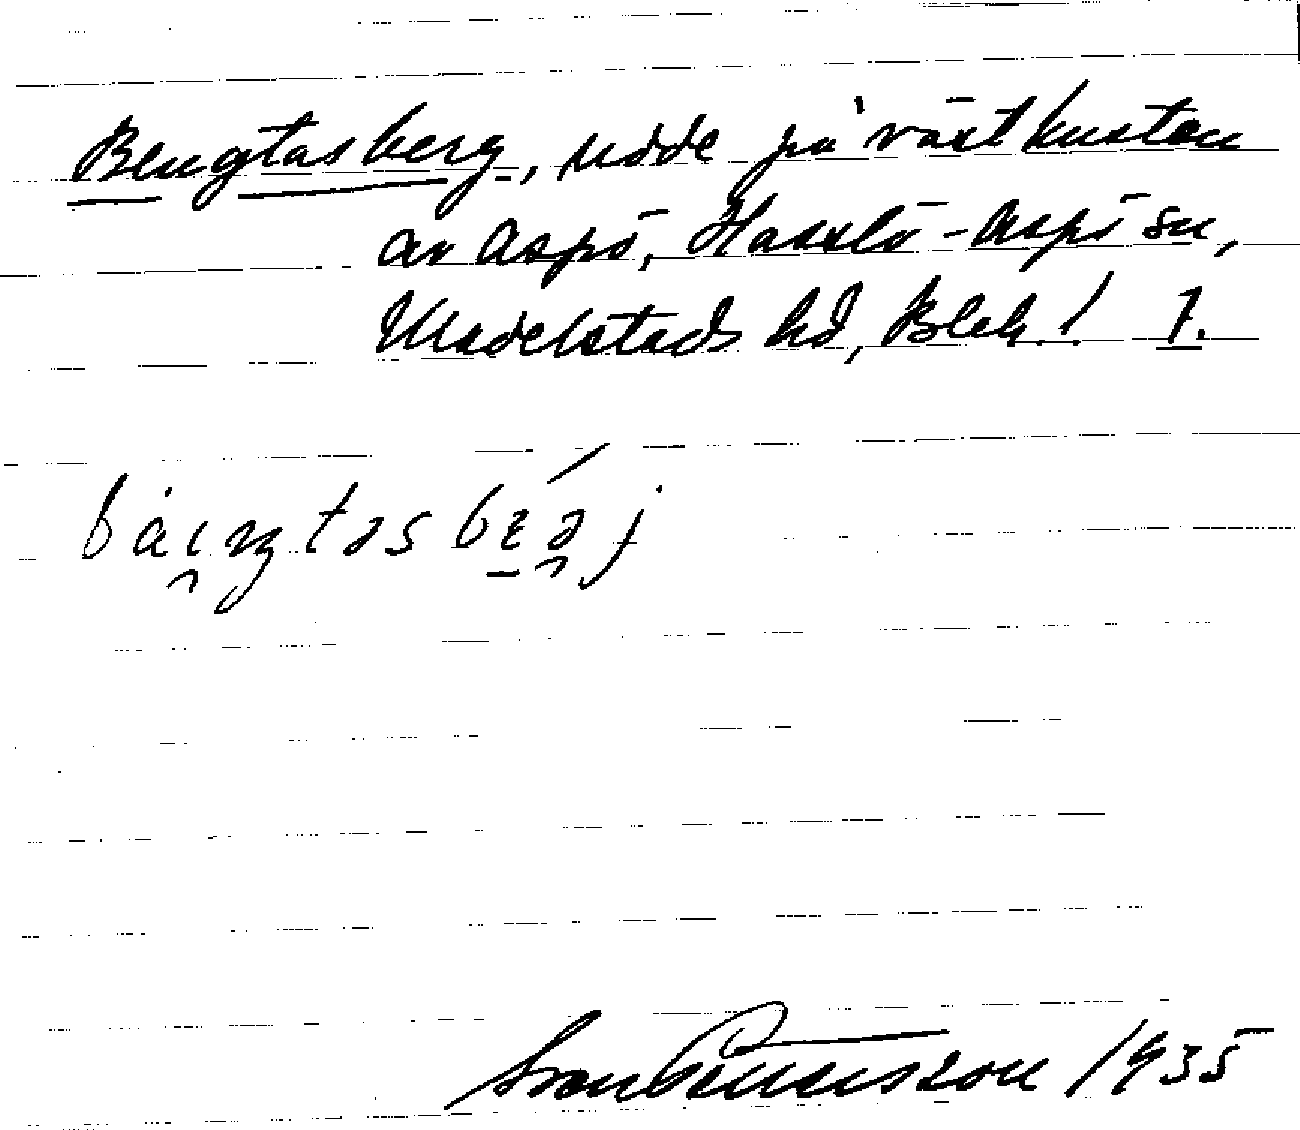 Bengtasberg, udde på västkusten
av Aspö, Hasslö-Aspö sn,
Medelstads hd, Blek.! 1.
báiŋtəsbɛ́əj
Sven Benson 1935